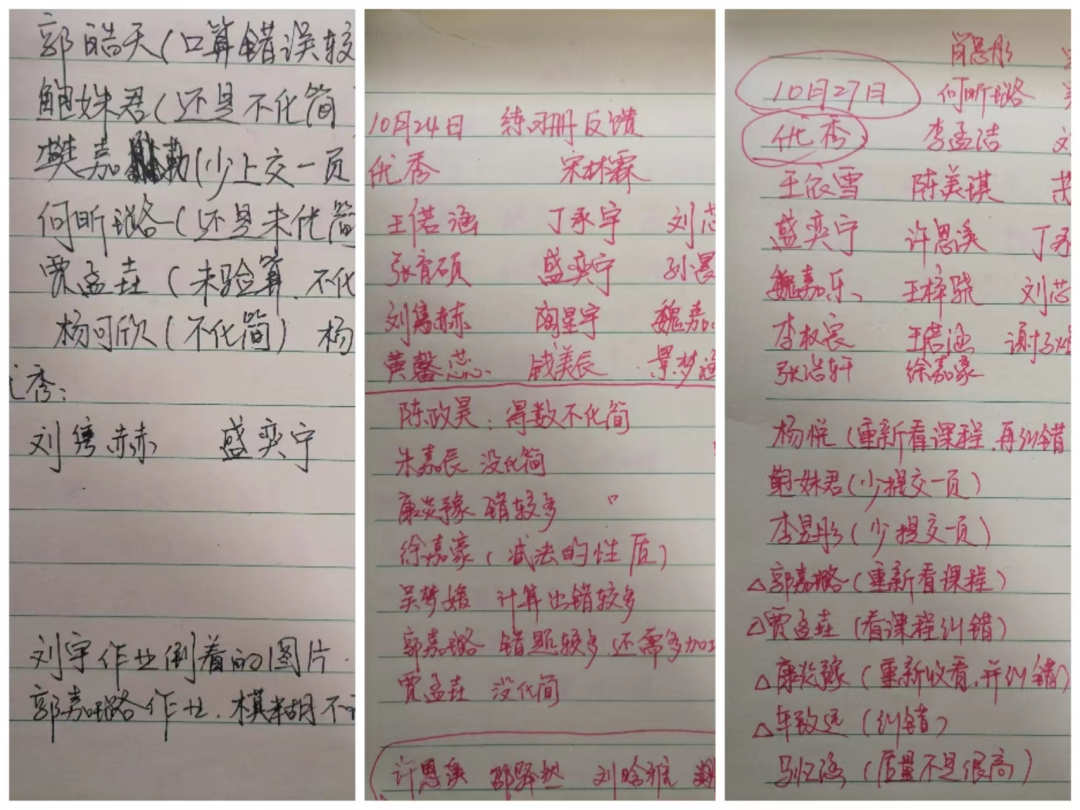 郭皓天(口算错误较
鲍姝君(还是不化简
樊嘉勤(少上交一页
何昕璐(还是未化简
贾孟垚(未验算.不化
杨可欣(不化简) 杨
秀:
刘隽赫 盛奕宁
刘宇作业倒着的图片.
郭嘉璐作业.模糊不
10月24日 练习册反馈
优秀 宋林霖
王偌涵 丁承宇 刘芯
张育硕 盛奕宁 孙
刘隽赫 陶星宇 魏嘉
黄馨蕊 戚美辰 景梦涵
陈政昊:得数不化简
朱嘉辰 没化简
康炎豫 错较多 "
徐嘉豪(减法的性质)
吴梦媛 计算出错较多
郭嘉璐 错题较多.还需多加
贾孟垚 没化简
许恩溪 刘晗
肖思彤
10月27日 何昕璐
优秀 李孟洁
王依雪 陈美琪
盛奕宁 许恩溪 丁承
魏嘉乐、 王梓骁 刘芯
李 王偌涵 谢
张浩轩 徐嘉豪
杨悦(重新看课程.再纠错
鲍姝君(少提交一页)
李昱彤(少提交一页)
△郭嘉璐(重新看课程)
△贾孟垚(看课程纠错)
△康炎豫(重新收看.并纠错)
△车致远(纠错)
(质量不是很高)